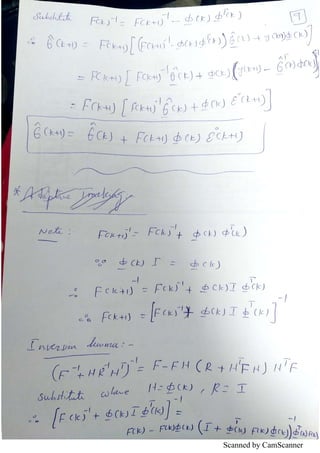 Substitute F(k)⁻¹ = F(k+1)⁻¹ - φ(k) φᵀ(k)
7
∴ θ̂(k+1) = F(k+1) [ (F(k+1)⁻¹ - φ(k) φᵀ(k)) θ̂(k) + y(k+1) φ(k) ]
= F(k+1) [ F(k+1)⁻¹ θ̂(k) + φ(k) ( y(k+1) - θ̂ᵀ(k) φ(k) ) ]
= F(k+1) [ F(k+1)⁻¹ θ̂(k) + φ(k) ε°(k+1) ]
θ̂(k+1) = θ̂(k) + F(k+1) φ(k) ε°(k+1)
Note: F(k+1)⁻¹ = F(k)⁻¹ + φ(k) φᵀ(k)
∵ φ(k) I = φ(k)
∴ F(k+1)⁻¹ = F(k)⁻¹ + φ(k) I φᵀ(k)
∴ F(k+1) = [ F(k)⁻¹ + φ(k) I φᵀ(k) ]⁻¹
Inversion lemma :-
(F⁻¹ + H R⁻¹ Hᵀ)⁻¹ = F - F H ( R + Hᵀ F H )⁻¹ Hᵀ F
Substitute where H = φ(k) , R = I
∴ [ F(k)⁻¹ + φ(k) I φᵀ(k) ]⁻¹ =
F(k) - F(k) φ(k) ( I + φᵀ(k) F(k) φ(k) )⁻¹ φᵀ(k) F(k)
Scanned by CamScanner